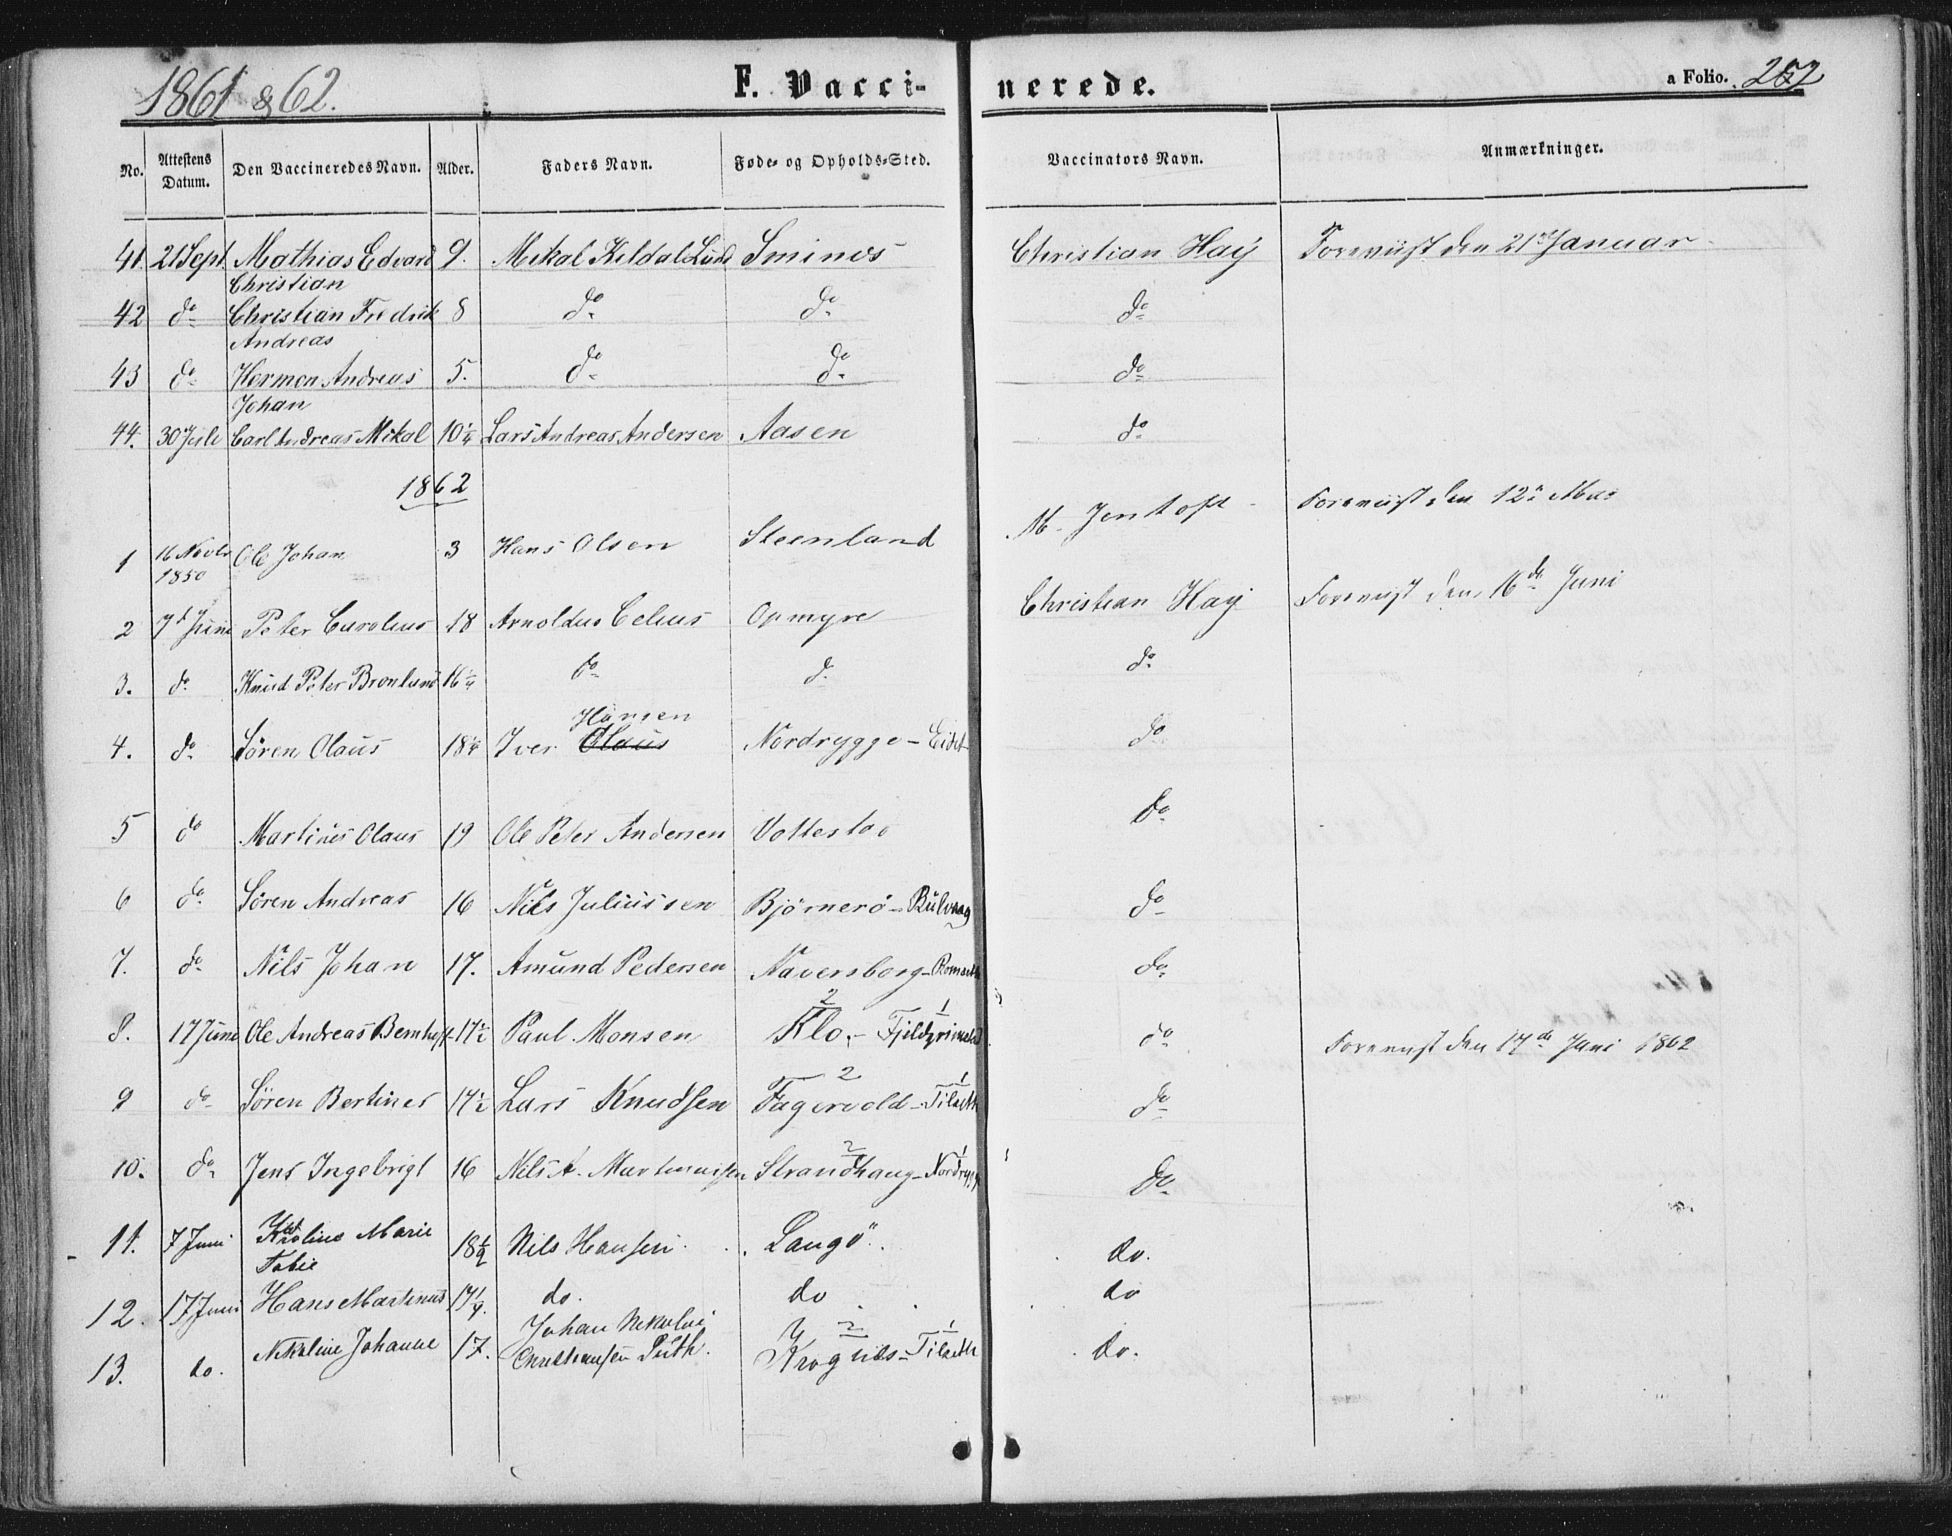 1861 & 62.
F. Vacci-
nerede.
a Folio. 252
No. Attestens Datum. Den Vaccineredes Navn. Alder. Faders Navn. Føde- og Opholds-Sted. Vaccinators Navn. Anmærkninger.
41. 21 Sept. Mathias Edvard Christian 9. Mikal Kildal Lund Smines Christian Haÿ Foreviist den 21de Januar
42 do Christian Fredrik Andreas 8 do do do
43 do Herman Andreas Johan 5. do do do
44. 30 Carl Andreas Mikal 10 1/4 Lars Andreas Andersen Aasen do
1862
1 16 Novbr 1850 Ole Johan 3 Hans Olsen Steenland M. Jentoft Foreviist den 12te Mai
2 7d Juni Peter Carolius 18 Arnoldus Celius Ormyre Christian Haÿ Foreviist den 16de Juni
3. do Knud Peter Bronlund 16 1/4 do do do
4. do Søren Olaus 18 1/4 Iver Hansen Olaus Nordrygge - Eidet do
5 do Martines Olaus 19 Ole Peter Andersen Vottestad do
6 do Søren Andreas 16 Nils Juliussen Bjørnerö - Rulvaag do
7. do Nils Johan 17. Amund Pedersen Naversborg - Romseth do
8. 17 Juni Ole Andreas Bernhoft 17 1/2 Paul Monsen 2 Klo. - 1 do Foreviist den 17de Juni 1862
9 do Søren Bertines 17 1/2 Lars Knudsen 2 Fagervold - 1 Tilseth do
10. do Jens Ingebrigt 16 Nils A. Martinussen 2 Strandhaug - 1 Nordrygge do
11. 7 Juni Karoline Marie Tobie 18 1/2 Nils Hansen Langö do.
12. 17 Juni Hans Martinus 17 1/4. do. do do
13. do. Nekoline Johanne 17. Johan Nekolai Christiansen Puth. 2 Krognes - 1 Tilseth do.